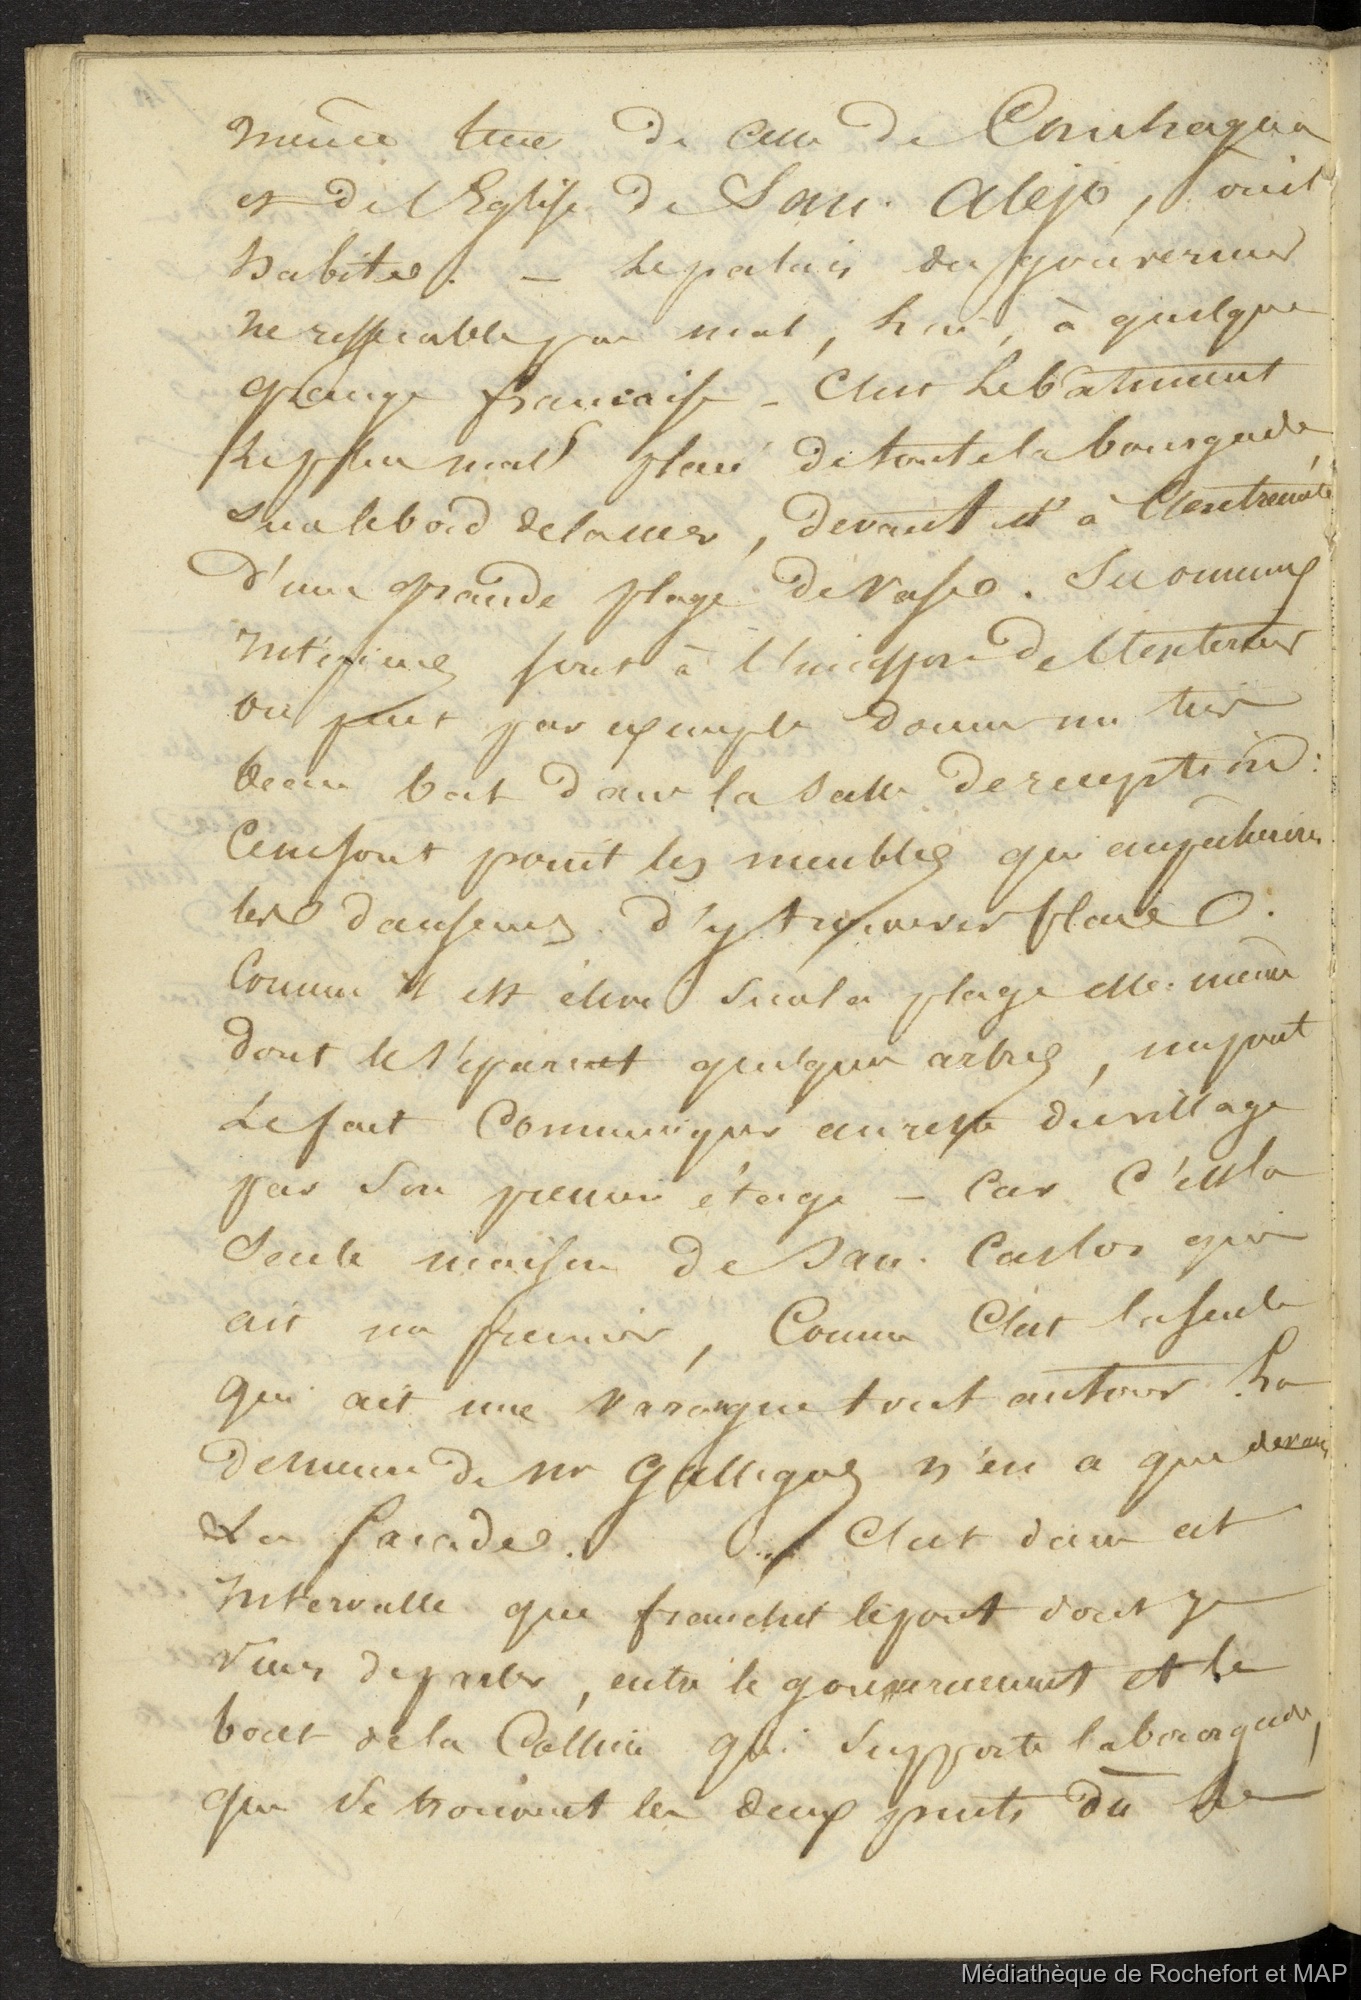 même tems de celle de Conchagua
et de l'Eglise de San. Alejo, soit
habitée. — Le palais du gouverneur
ne ressemble pas mal, lui, à quelque
grange française — C'est le bâtiment
le plus mal placé de toute la bourgade,
sur le bord de la mer, devant et à l'extremité
d'une grande plage de vase. Ses
intérieures sont à l'unisson de l'exterieur
on peut par exemple donner un très
beau bal dans la salle de reception:
ce ne sont point les meubles qui empecheraient
les danseurs d'y trouver place.
Comme il est élevé sur la plage elle. même
dont le séparent quelques arbres, un pont
le fait communiquer au reste du village
par son premier étage — Car c'est la
seule maison de San. Carlos qui
ait un premier, Comme c'est la seule
qui ait une varangue tout autour. La
demeure de Mr Gallegos n'en a que devant
La façade. C'est dans cet
intervalle que franchit le pont dont je
viens de parler, entre le gouvernement et le
bout de la Colline qui supporte la bourgade,
que se trouvent les deux puits du lie
Médiathèque de Rochefort et MAP